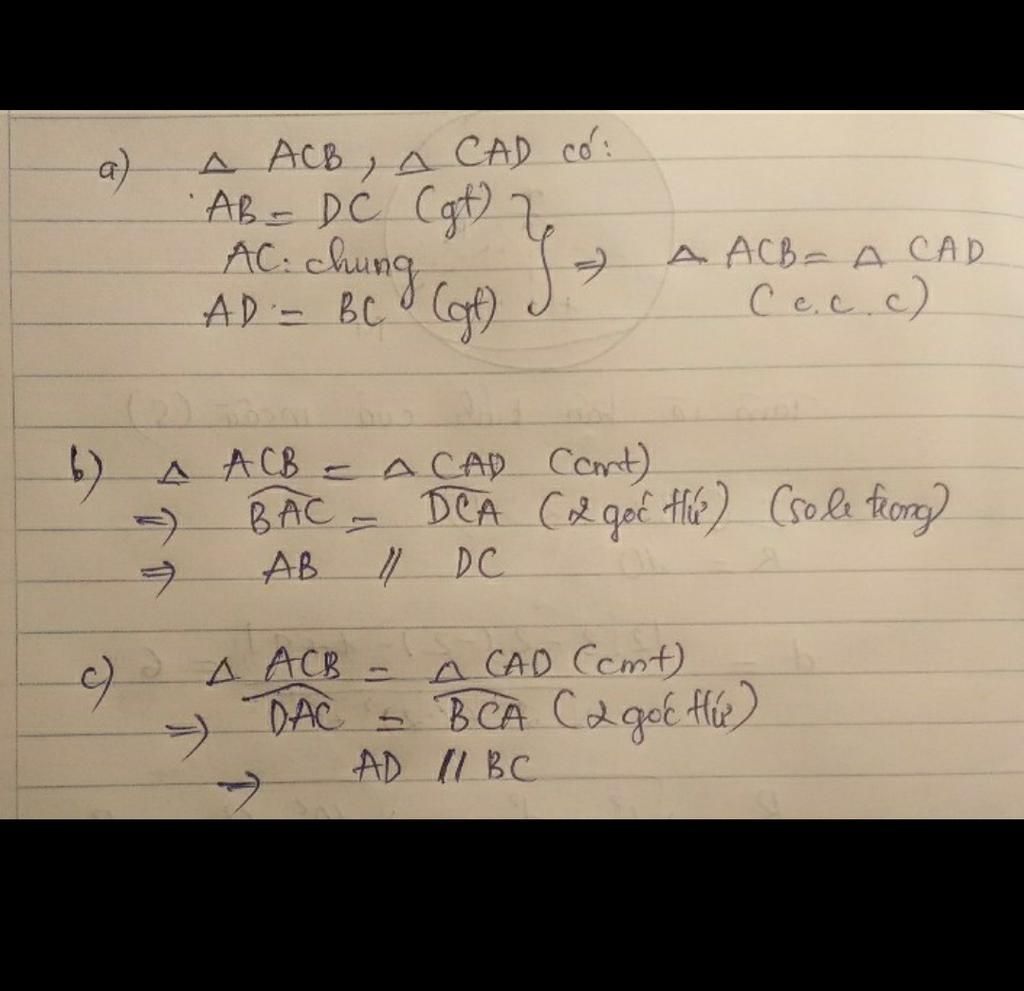 a) Δ ACB, Δ CAD có:
AB = DC (gt)
AC: chung
AD = BC (gt)
} => Δ ACB = Δ CAD
(c.c.c)
b) Δ ACB = Δ CAD (cmt)
=> \widehat{BAC} = \widehat{DCA} (2 góc t/ứ) (so le trong)
=> AB // DC
c) Δ ACB = Δ CAD (cmt)
=> \widehat{DAC} = \widehat{BCA} (2 góc t/ứ)
=> AD // BC